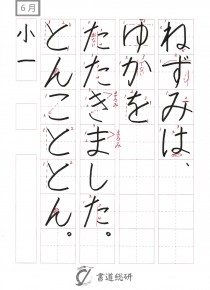 6月
ねずみは、
ゆかを
たたきました。
とんこととん。
小一
書道総研